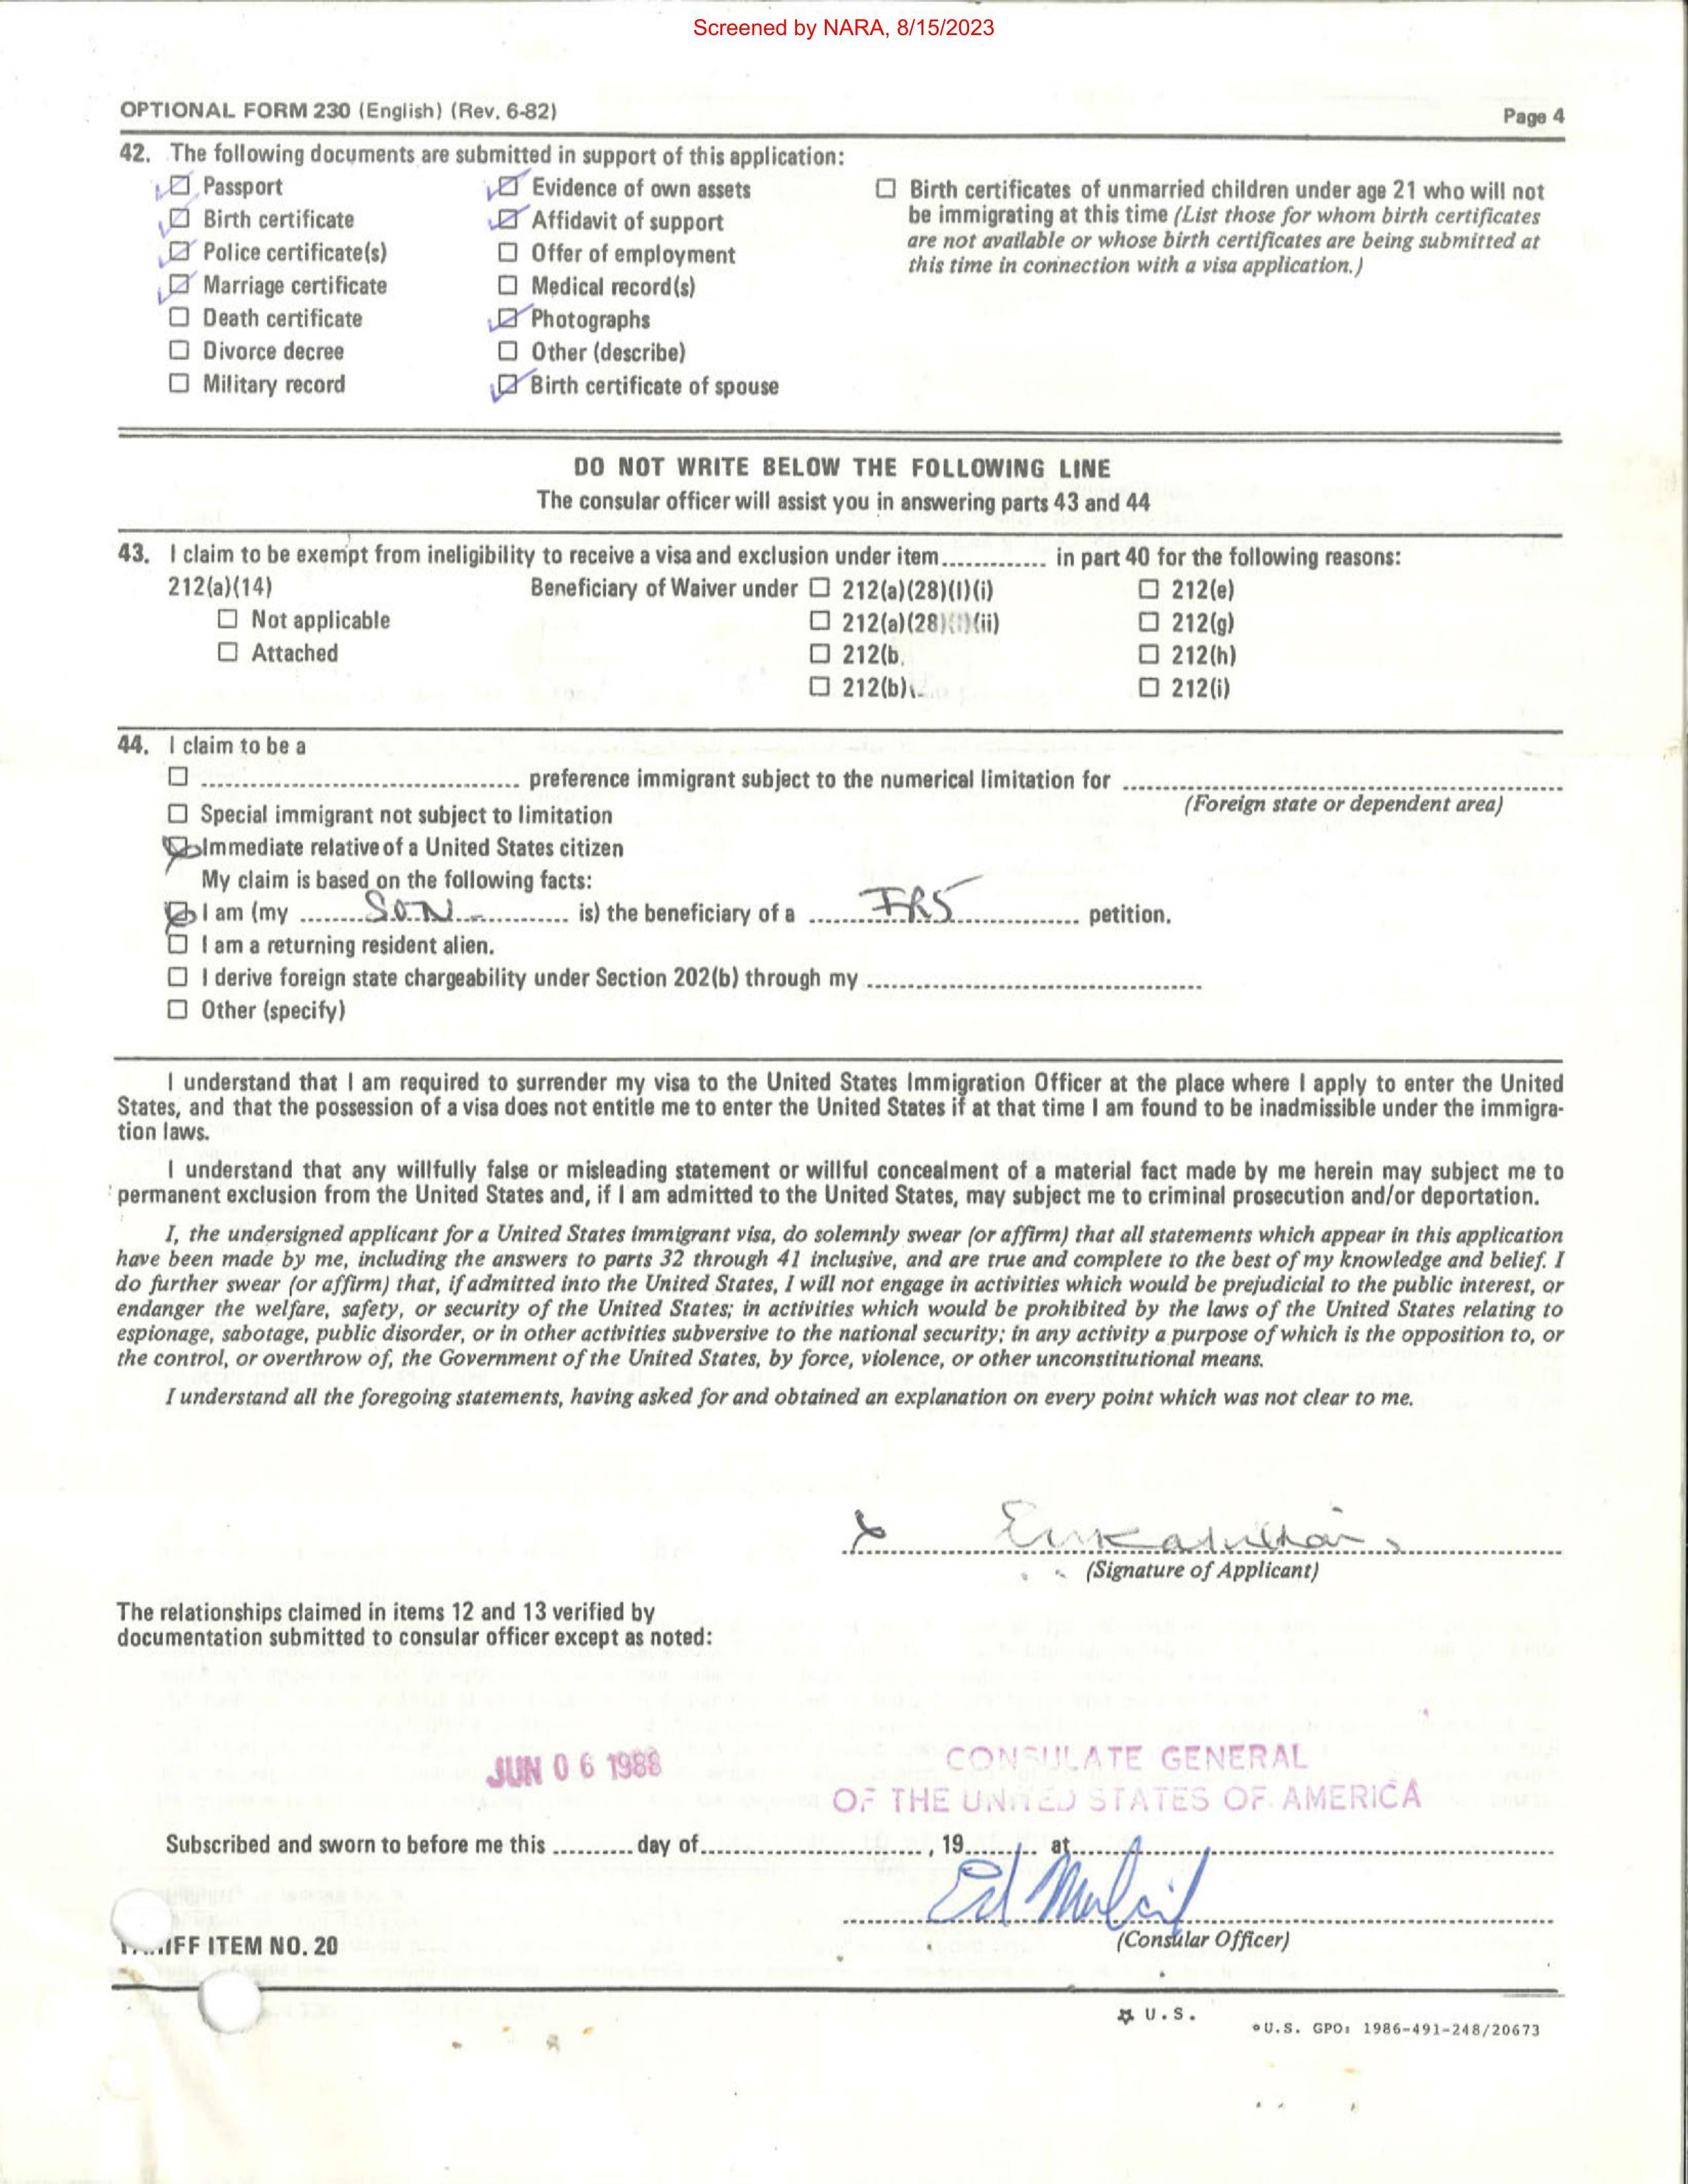 Screened by NARA, 8/15/2023
OPTIONAL FORM 230 (English) (Rev. 6-82)
Page 4
42. The following documents are submitted in support of this application:
Passport
Birth certificate
Police certificate(s)
Marriage certificate
Death certificate
Divorce decree
Military record
Evidence of own assets
Affidavit of support
Offer of employment
Medical record(s)
Photographs
Other (describe)
Birth certificate of spouse
Birth certificates of unmarried children under age 21 who will not
be immigrating at this time (List those for whom birth certificates
are not available or whose birth certificates are being submitted at
this time in connection with a visa application.)
DO NOT WRITE BELOW THE FOLLOWING LINE
The consular officer will assist you in answering parts 43 and 44
43. I claim to be exempt from ineligibility to receive a visa and exclusion under item............. in part 40 for the following reasons:
212(a)(14)
Not applicable
Attached
Beneficiary of Waiver under
212(a)(28)(I)(i)
212(a)(28)(I)(ii)
212(b
212(b)
212(e)
212(g)
212(h)
212(i)
44. I claim to be a
preference immigrant subject to the numerical limitation for
(Foreign state or dependent area)
Special immigrant not subject to limitation
Immediate relative of a United States citizen
My claim is based on the following facts:
I am (my SON is) the beneficiary of a IR5 petition.
I am a returning resident alien.
I derive foreign state chargeability under Section 202(b) through my
Other (specify)
I understand that I am required to surrender my visa to the United States Immigration Officer at the place where I apply to enter the United
States, and that the possession of a visa does not entitle me to enter the United States if at that time I am found to be inadmissible under the immigra-
tion laws.
I understand that any willfully false or misleading statement or willful concealment of a material fact made by me herein may subject me to
permanent exclusion from the United States and, if I am admitted to the United States, may subject me to criminal prosecution and/or deportation.
I, the undersigned applicant for a United States immigrant visa, do solemnly swear (or affirm) that all statements which appear in this application
have been made by me, including the answers to parts 32 through 41 inclusive, and are true and complete to the best of my knowledge and belief. I
do further swear (or affirm) that, if admitted into the United States, I will not engage in activities which would be prejudicial to the public interest, or
endanger the welfare, safety, or security of the United States; in activities which would be prohibited by the laws of the United States relating to
espionage, sabotage, public disorder, or in other activities subversive to the national security; in any activity a purpose of which is the opposition to, or
the control, or overthrow of, the Government of the United States, by force, violence, or other unconstitutional means.
I understand all the foregoing statements, having asked for and obtained an explanation on every point which was not clear to me.
(Signature of Applicant)
The relationships claimed in items 12 and 13 verified by
documentation submitted to consular officer except as noted:
JUN 06 1988
CONSULATE GENERAL
OF THE UNITED STATES OF AMERICA
Subscribed and sworn to before me this .......... day of............................, 19......... at
Ed
(Consular Officer)
ITEM NO. 20
☆ U.S.
U.S. GPO: 1986-491-248/20673